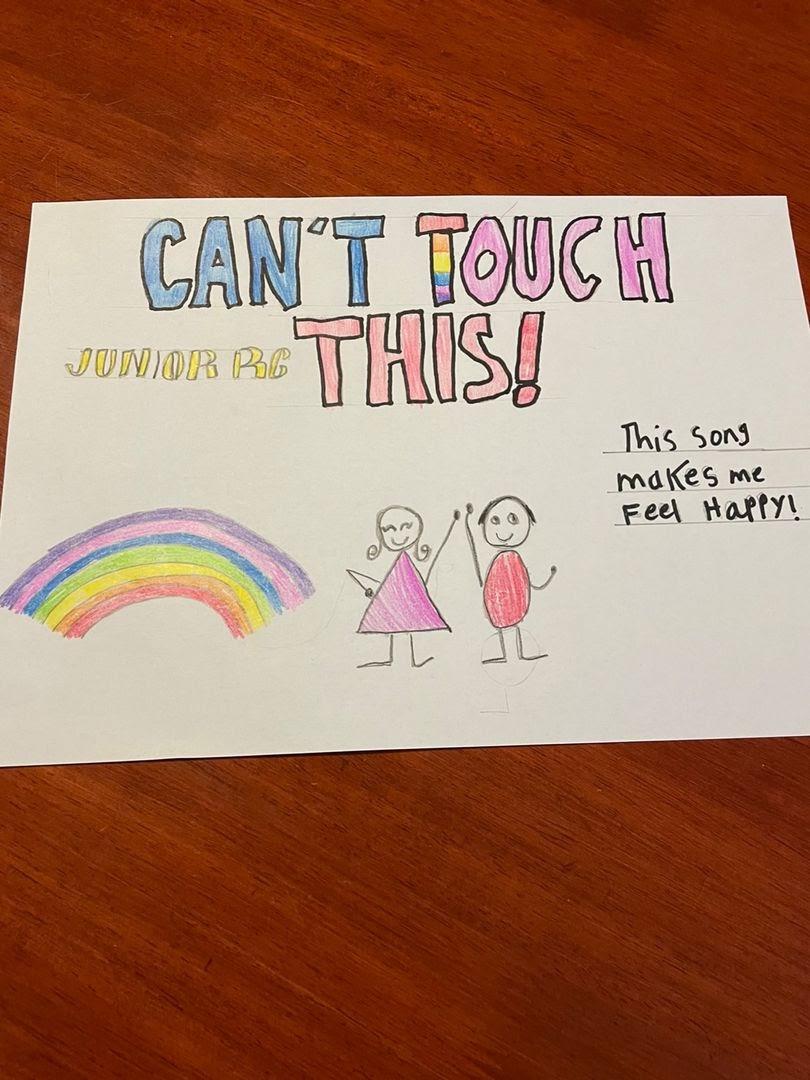 CAN'T TOUCH
THIS!
JUNIOR RC
This song
makes me
Feel Happy!